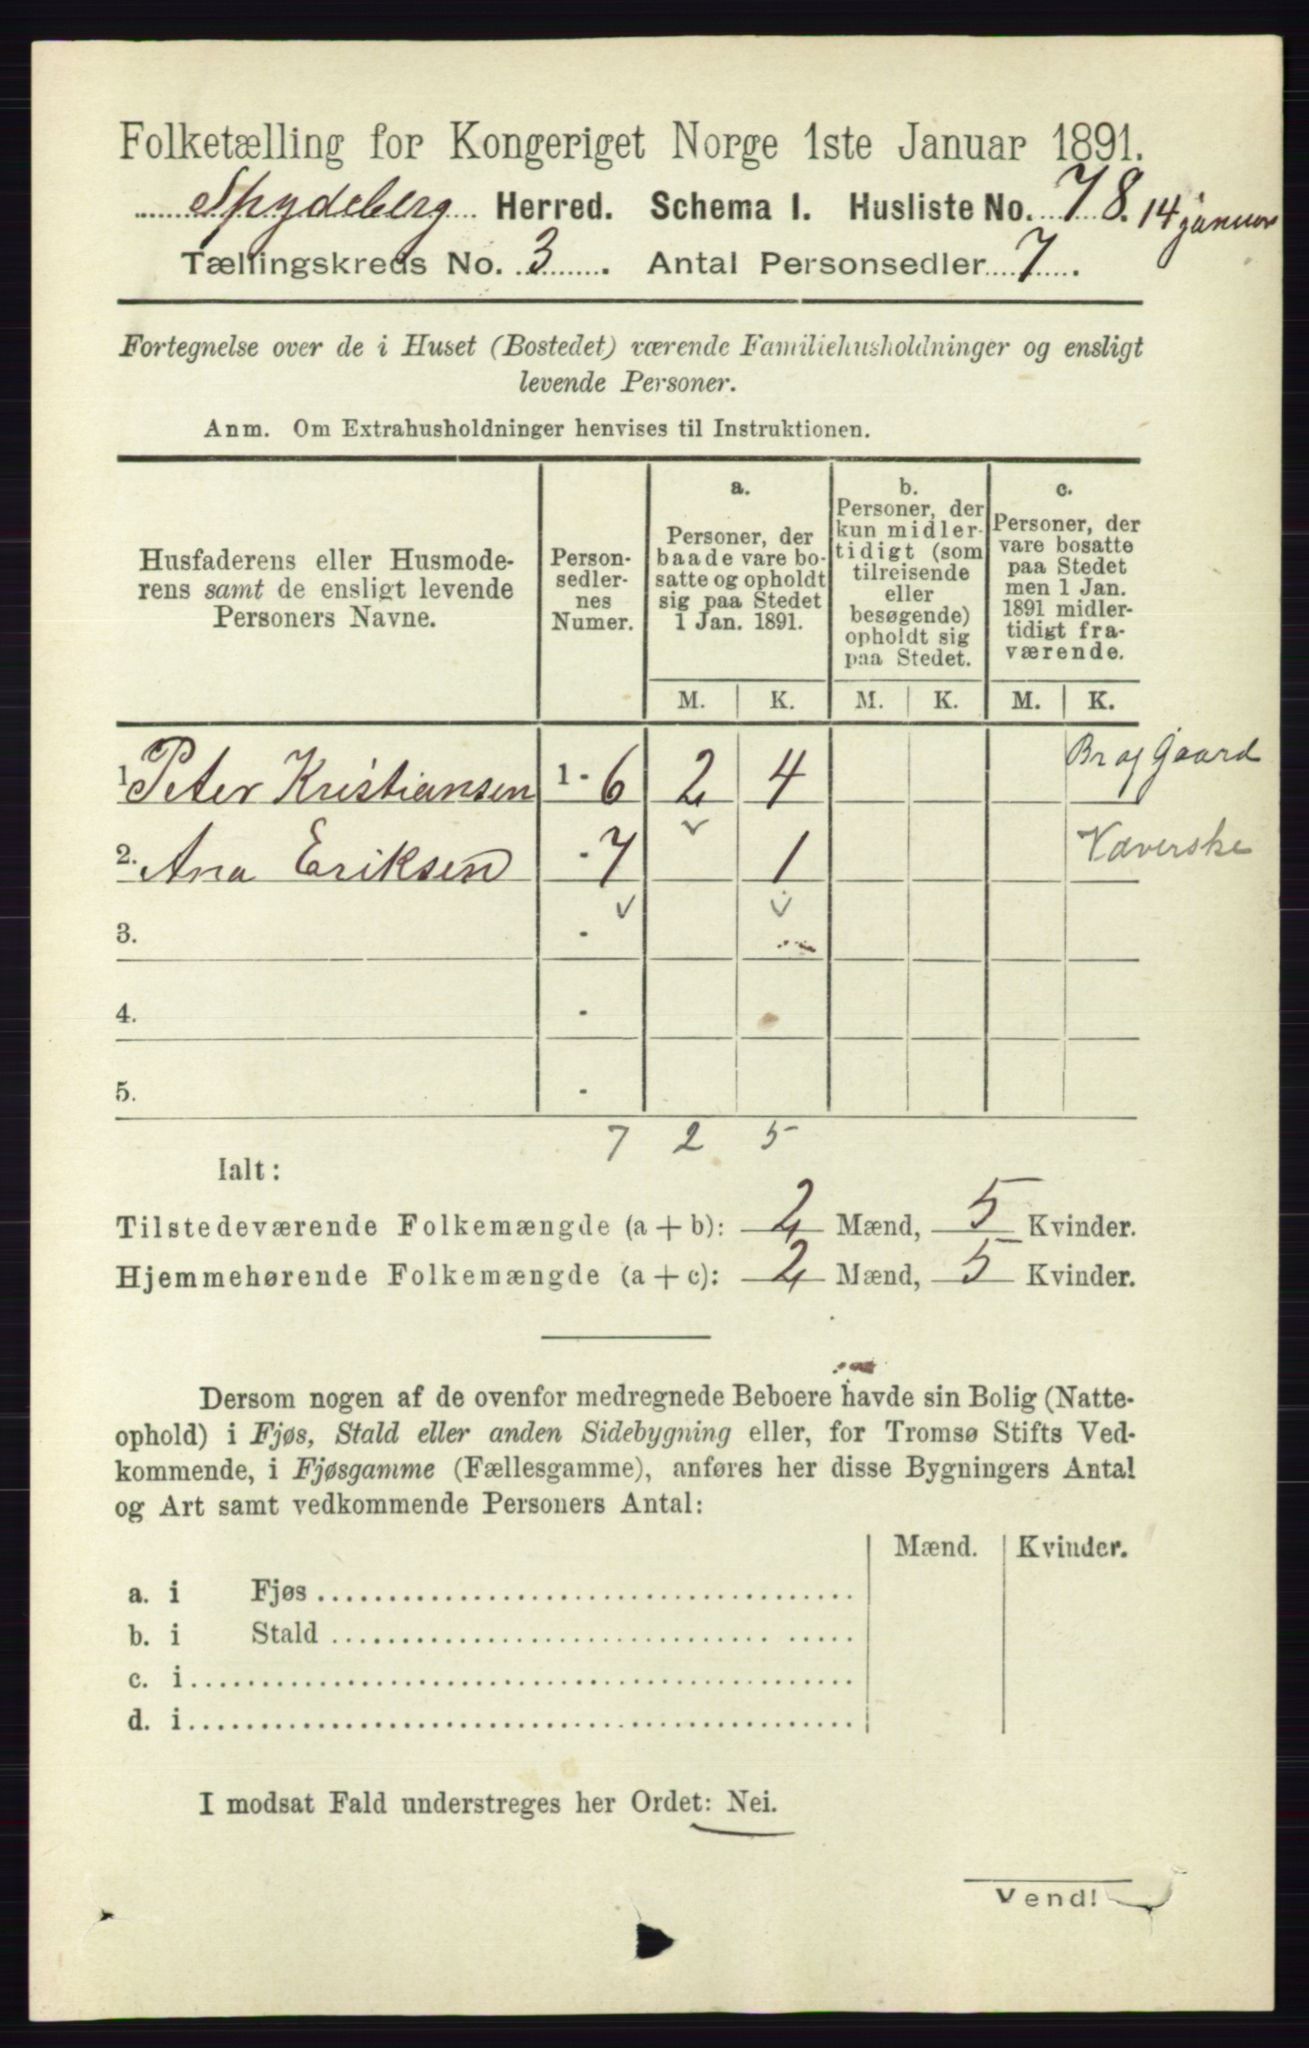 Folketælling for Kongeriget Norge 1ste Januar 1891.
Spydeberg Herred. Schema I. Husliste No. 78. 14 januar
Tællingskreds No. 3. Antal Personsedler 7.
Fortegnelse over de i Huset (Bostedet) værende Familiehusholdninger og ensligt
levende Personer.
Anm. Om Extrahusholdninger henvises til Instruktionen.
Husfaderens eller Husmode-
rens samt de ensligt levende
Personers Navne.
Person-
sedler-
nes
Numer.
a.
Personer, der
baade vare bo-
satte og opholdt
sig paa Stedet
1 Jan. 1891.
b.
Personer, der
kun midler-
tidigt (som
tilreisende
eller
besøgende)
opholdt sig
paa Stedet.
c.
Personer, der
vare bosatte
paa Stedet
men 1 Jan.
1891 midler-
tidigt fra-
værende.
M. K. M. K. M. K.
1. Peter Kristiansen 1 - 6 2 4 Br af Gaard
2. Ana Eriksen - 7 1 Væverske
3. -
4. -
5. -
7 2 5
Ialt:
Tilstedeværende Folkemængde (a + b): 2 Mænd, 5 Kvinder.
Hjemmehørende Folkemængde (a + c): 2 Mænd, 5 Kvinder.
Dersom nogen af de ovenfor medregnede Beboere havde sin Bolig (Natte-
ophold) i Fjøs, Stald eller anden Sidebygning eller, for Tromsø Stifts Ved-
kommende, i Fjøsgamme (Fællesgamme), anføres her disse Bygningers Antal
og Art samt vedkommende Personers Antal:
Mænd. Kvinder.
a. i Fjøs
b. i Stald
c. i
d. i
I modsat Fald understreges her Ordet: Nei.
Vend!